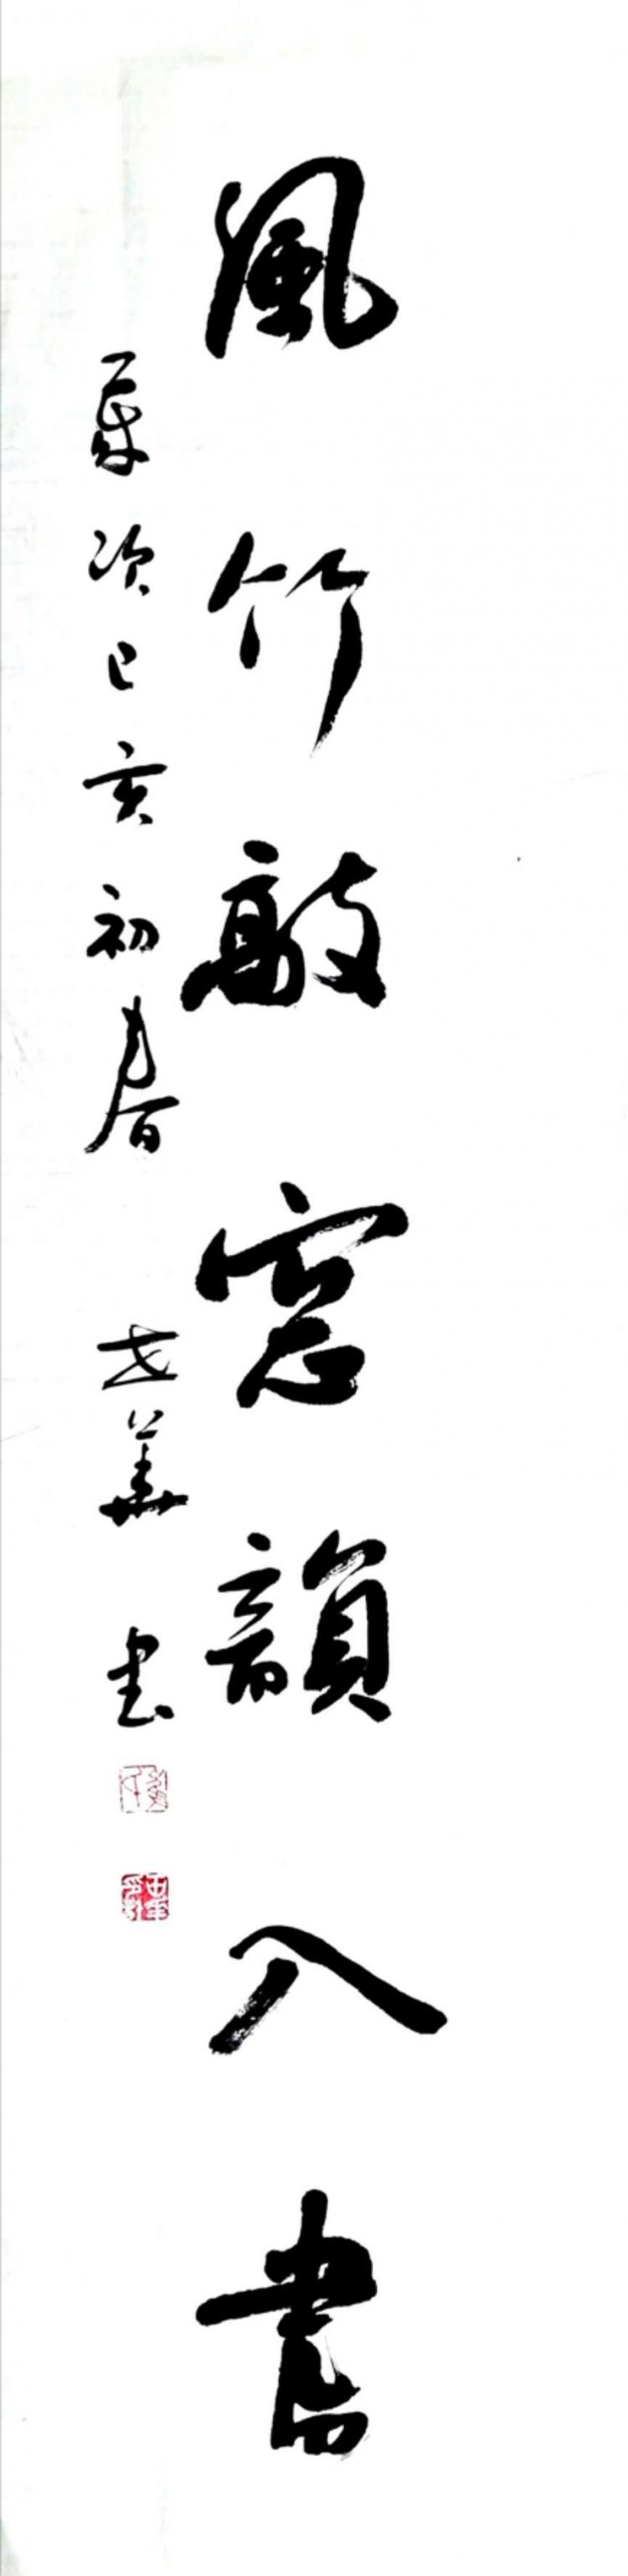 風竹敲窓韻入書
歲次己亥初春 世善书